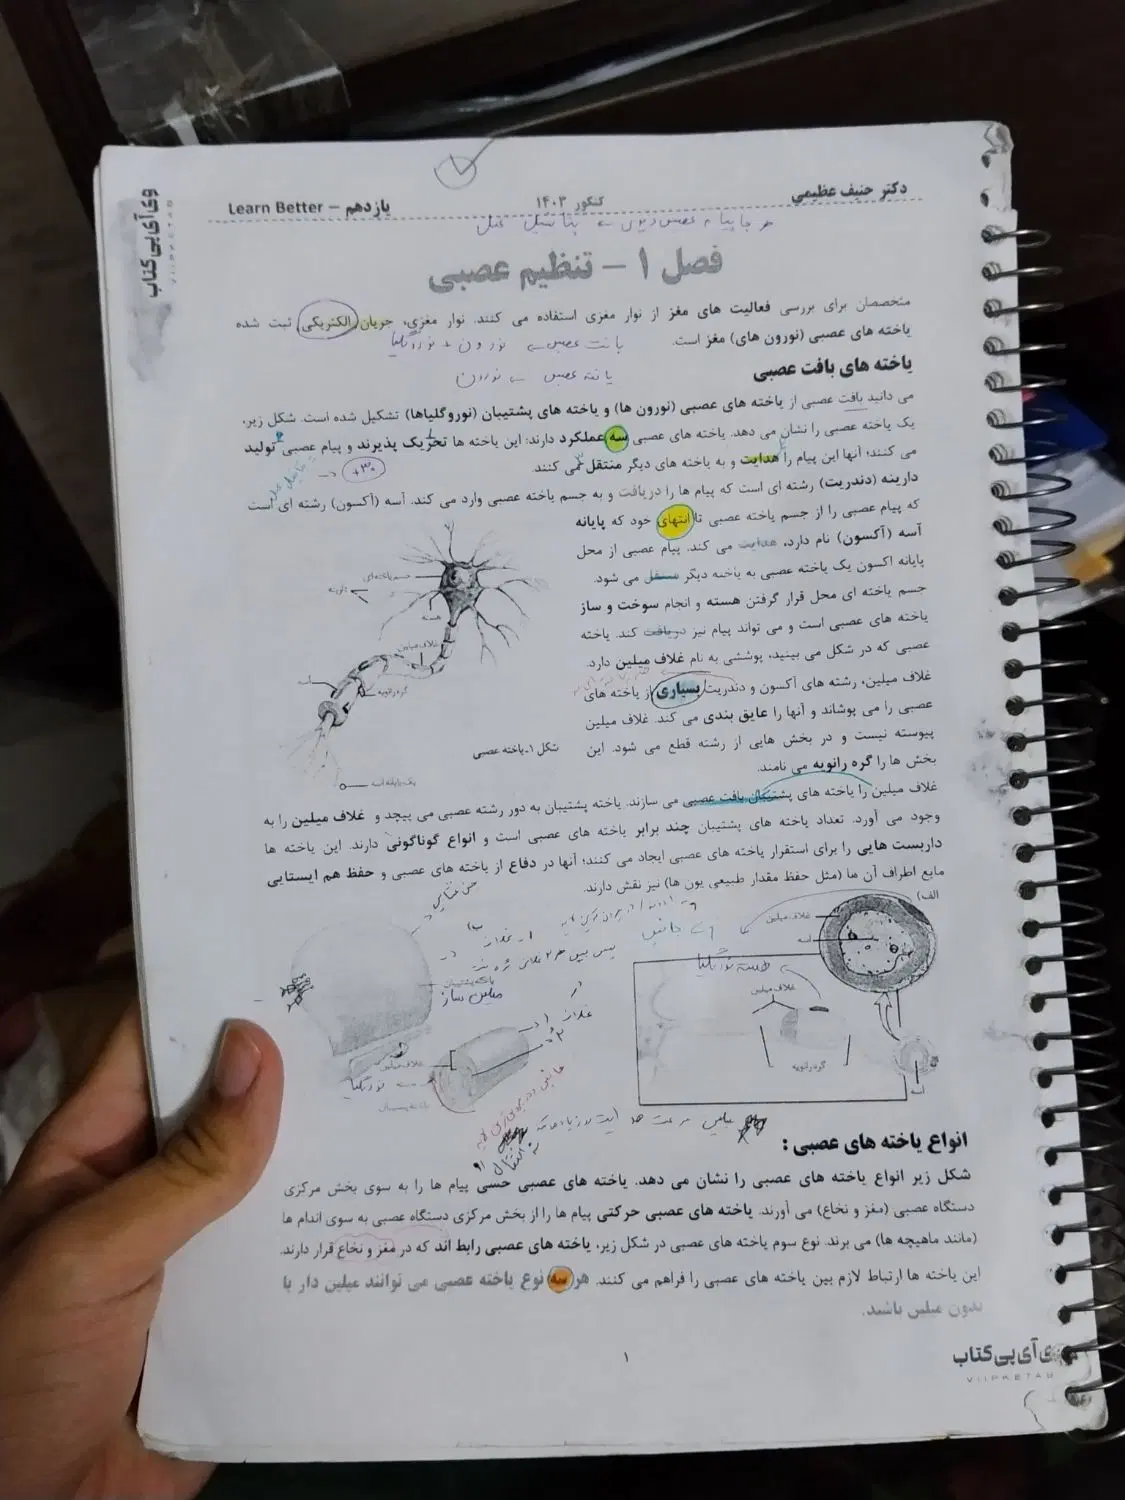 دکتر حنیف عظیمی
کنکور ۱۴۰۳
یازدهم – Learn Better
وی آی پی کتاب
VIIPKETAB
فصل ۱ – تنظیم عصبی
متخصصان برای بررسی فعالیت های مغز از نوار مغزی استفاده می کنند. نوار مغزی، جریان الکتریکی ثبت شده
یاخته های عصبی (نورون های) مغز است.
یاخته های بافت عصبی
می دانید بافت عصبی از یاخته های عصبی (نورون ها) و یاخته های پشتیبان (نوروگلیاها) تشکیل شده است. شکل زیر،
یک یاخته عصبی را نشان می دهد. یاخته های عصبی سه عملکرد دارند: این یاخته ها تحریک پذیرند و پیام عصبی تولید
می کنند؛ آنها این پیام را هدایت و به یاخته های دیگر منتقل می کنند.
دارینه (دندریت) رشته ای است که پیام ها را دریافت و به جسم یاخته عصبی وارد می کند. آسه (آکسون) رشته ای است
که پیام عصبی را از جسم یاخته عصبی تا انتهای خود که پایانه
آسه (آکسون) نام دارد، هدایت می کند. پیام عصبی از محل
پایانه اکسون یک یاخته عصبی به یاخته دیگر منتقل می شود.
جسم یاخته ای محل قرار گرفتن هسته و انجام سوخت و ساز
یاخته های عصبی است و می تواند پیام نیز دریافت کند. یاخته
عصبی که در شکل می بینید، پوششی به نام غلاف میلین دارد.
غلاف میلین، رشته های آکسون و دندریت بسیاری از یاخته های
عصبی را می پوشاند و آنها را عایق بندی می کند. غلاف میلین
پیوسته نیست و در بخش هایی از رشته قطع می شود. این
بخش ها را گره رانویه می نامند.
جسم یاخته ای
دارینه
هسته
غلاف میلین
آسه
گره رانویه
پایانه آسه
شکل ۱-یاخته عصبی
غلاف میلین را یاخته های پشتیبان بافت عصبی می سازند. یاخته پشتیبان به دور رشته عصبی می پیچد و غلاف میلین را به
وجود می آورد. تعداد یاخته های پشتیبان چند برابر یاخته های عصبی است و انواع گوناگونی دارند. این یاخته ها
داربست هایی را برای استقرار یاخته های عصبی ایجاد می کنند؛ آنها در دفاع از یاخته های عصبی و حفظ هم ایستایی
مایع اطراف آن ها (مثل حفظ مقدار طبیعی یون ها) نیز نقش دارند.
الف)
غلاف میلین
آسه
غلاف میلین
گره رانویه
آسه
ب)
یاخته پشتیبان
میلین ساز
غلاف میلین
نوروگلیا
انواع یاخته های عصبی :
شکل زیر انواع یاخته های عصبی را نشان می دهد. یاخته های عصبی حسی پیام ها را به سوی بخش مرکزی
دستگاه عصبی (مغز و نخاع) می آورند. یاخته های عصبی حرکتی پیام ها را از بخش مرکزی دستگاه عصبی به سوی اندام ها
(مانند ماهیچه ها) می برند. نوع سوم یاخته های عصبی در شکل زیر، یاخته های عصبی رابط اند که در مغز و نخاع قرار دارند.
این یاخته ها ارتباط لازم بین یاخته های عصبی را فراهم می کنند. هر سه نوع یاخته عصبی می توانند میلین دار یا
بدون میلین باشند.
۱
وی آی پی کتاب
VIIPKETAB